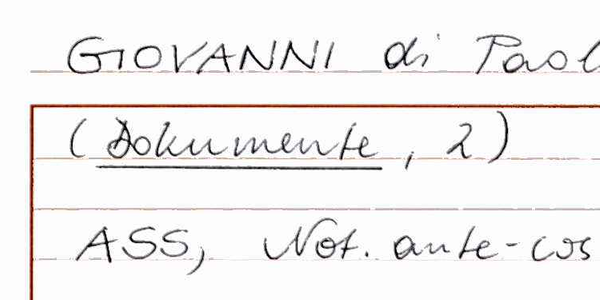 GIOVANNI di Paol
(Dokumente, 2)
ASS, Not. ante-cos